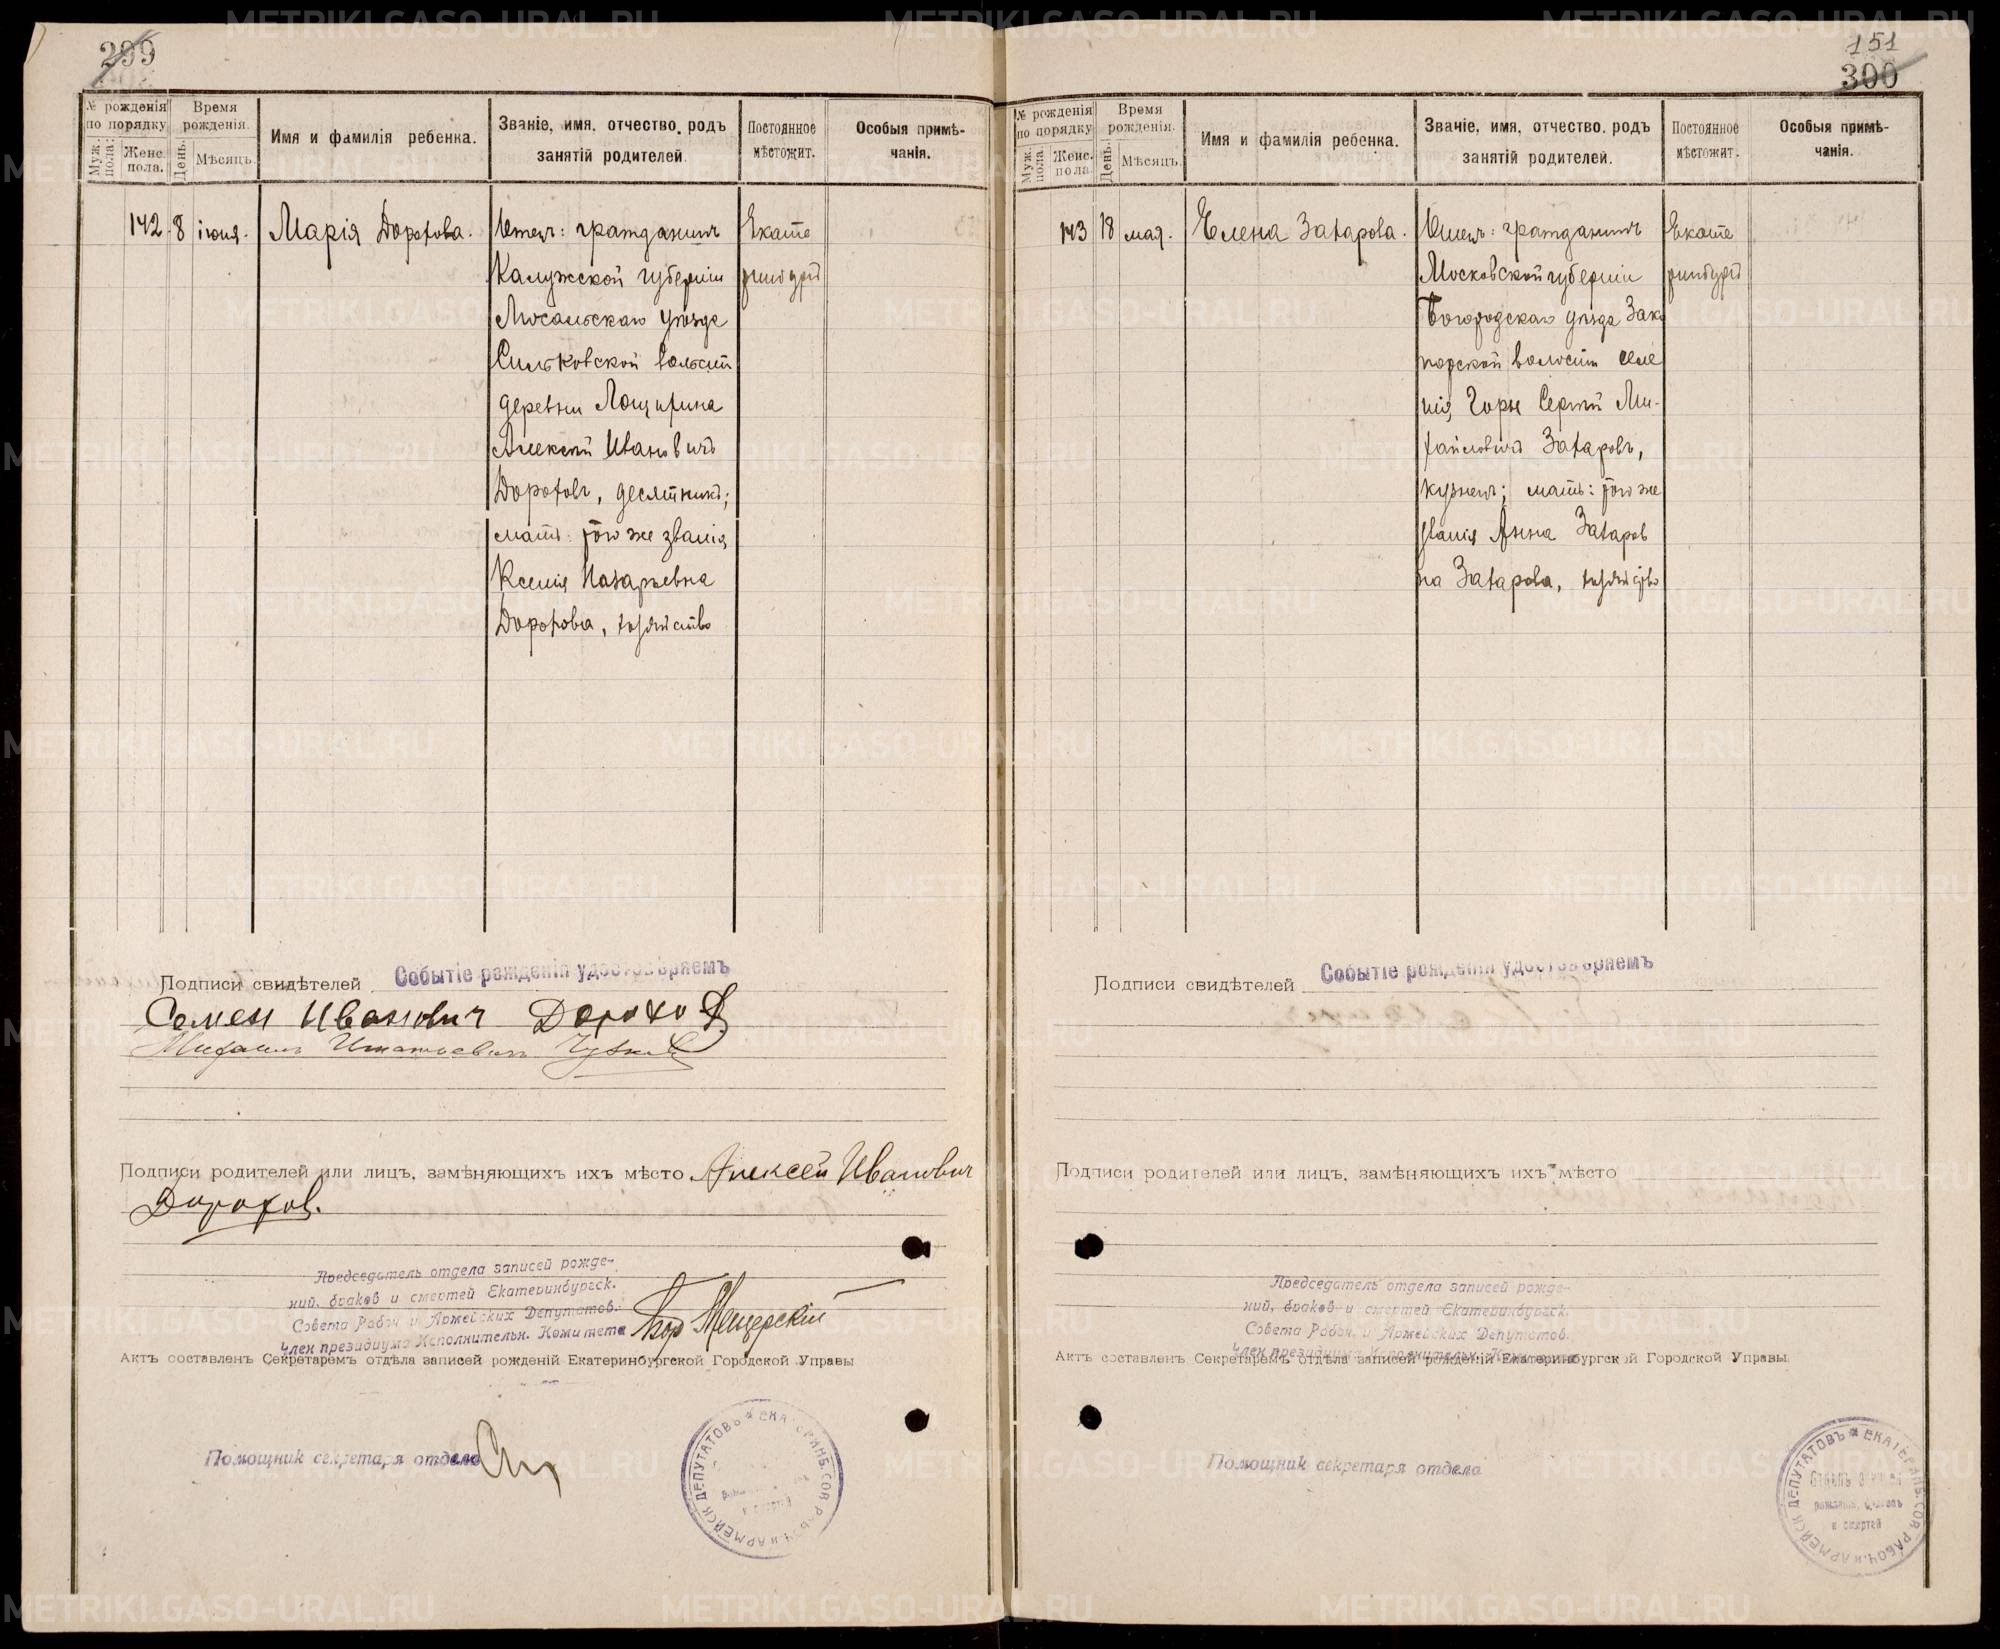 299
№ рожденія по порядку
Муж. пола.
Женс. пола.
Время рожденія.
День.
Мѣсяцъ.
Имя и фамилія ребенка.
Званіе, имя, отчество, родъ занятій родителей.
Постоянное мѣстожит.
Особыя примѣчанія.
142
8
іюня.
Марія Дорохова.
Отец: гражданинъ
Калужской губерніи
Мосальскаго уѣзда
Сильковской волости
деревни
Алексѣй Ивановичъ
Дороховъ, десятникъ;
мать: того же званія
Ксенія Назарьевна
Дорохова, хозяйство
Екате
ринбургъ
Подписи свидѣтелей
Событіе рожденія удостовѣряемъ
Семен Иванович Дорохов
Михаилъ Игнатьевичъ
Подписи родителей или лицъ, замѣняющихъ ихъ мѣсто Алексей Иванович
Дорохов.
Председатель отдела записей рожде-
ний, браков и смертей Екатеринбургск.
Совета Рабоч. и Армейских Депутатов.
Член президиума Исполнительн. Комитета
Мещерскій
Актъ составленъ Секретаремъ отдѣла записей рожденій Екатеринбургской Городской Управы
Помощник секретаря отдела
ЕКАТЕРИНБ. СОВ. РАБОЧ. и АРМЕЙСК ДЕПУТАТОВЪ
и смертей
151
300
№ рожденія по порядку
Муж. пола.
Женс. пола
Время рожденія.
День.
Мѣсяцъ.
Имя и фамилія ребенка.
Званіе, имя, отчество, родъ занятій родителей.
Постоянное мѣстожит.
Особыя примѣчанія.
143
18
мая.
Елена Захарова.
Отец: гражданинъ
Московской губерніи
Богородскаго уѣзда Зап
норской волости селе
нія Горы Сергѣй Ми-
хайловичъ Захаровъ,
кузнецъ; мать: того же
званія Анна Захаров
на Захарова, хозяйство
Екате
ринбургъ
Подписи свидѣтелей
Событіе рожденія удостовѣряемъ
Подписи родителей или лицъ, замѣняющихъ ихъ мѣсто
Председатель отдела записей рожде-
ний, браков и смертей Екатеринбургск.
Совета Рабоч. и Армейских Депутатов.
Член президиума Исполнительн. Комитета
Актъ составленъ Секретаремъ отдѣла записей рожденій Екатеринбургской Городской Управы
Помощник секретаря отдела
ЕКАТЕРИНБ. СОВ. РАБОЧ. и АРМЕЙСК ДЕПУТАТОВЪ
Отдѣлъ записей
рожденій, браковъ
и смертей
METRIKI.GASO-URAL.RU